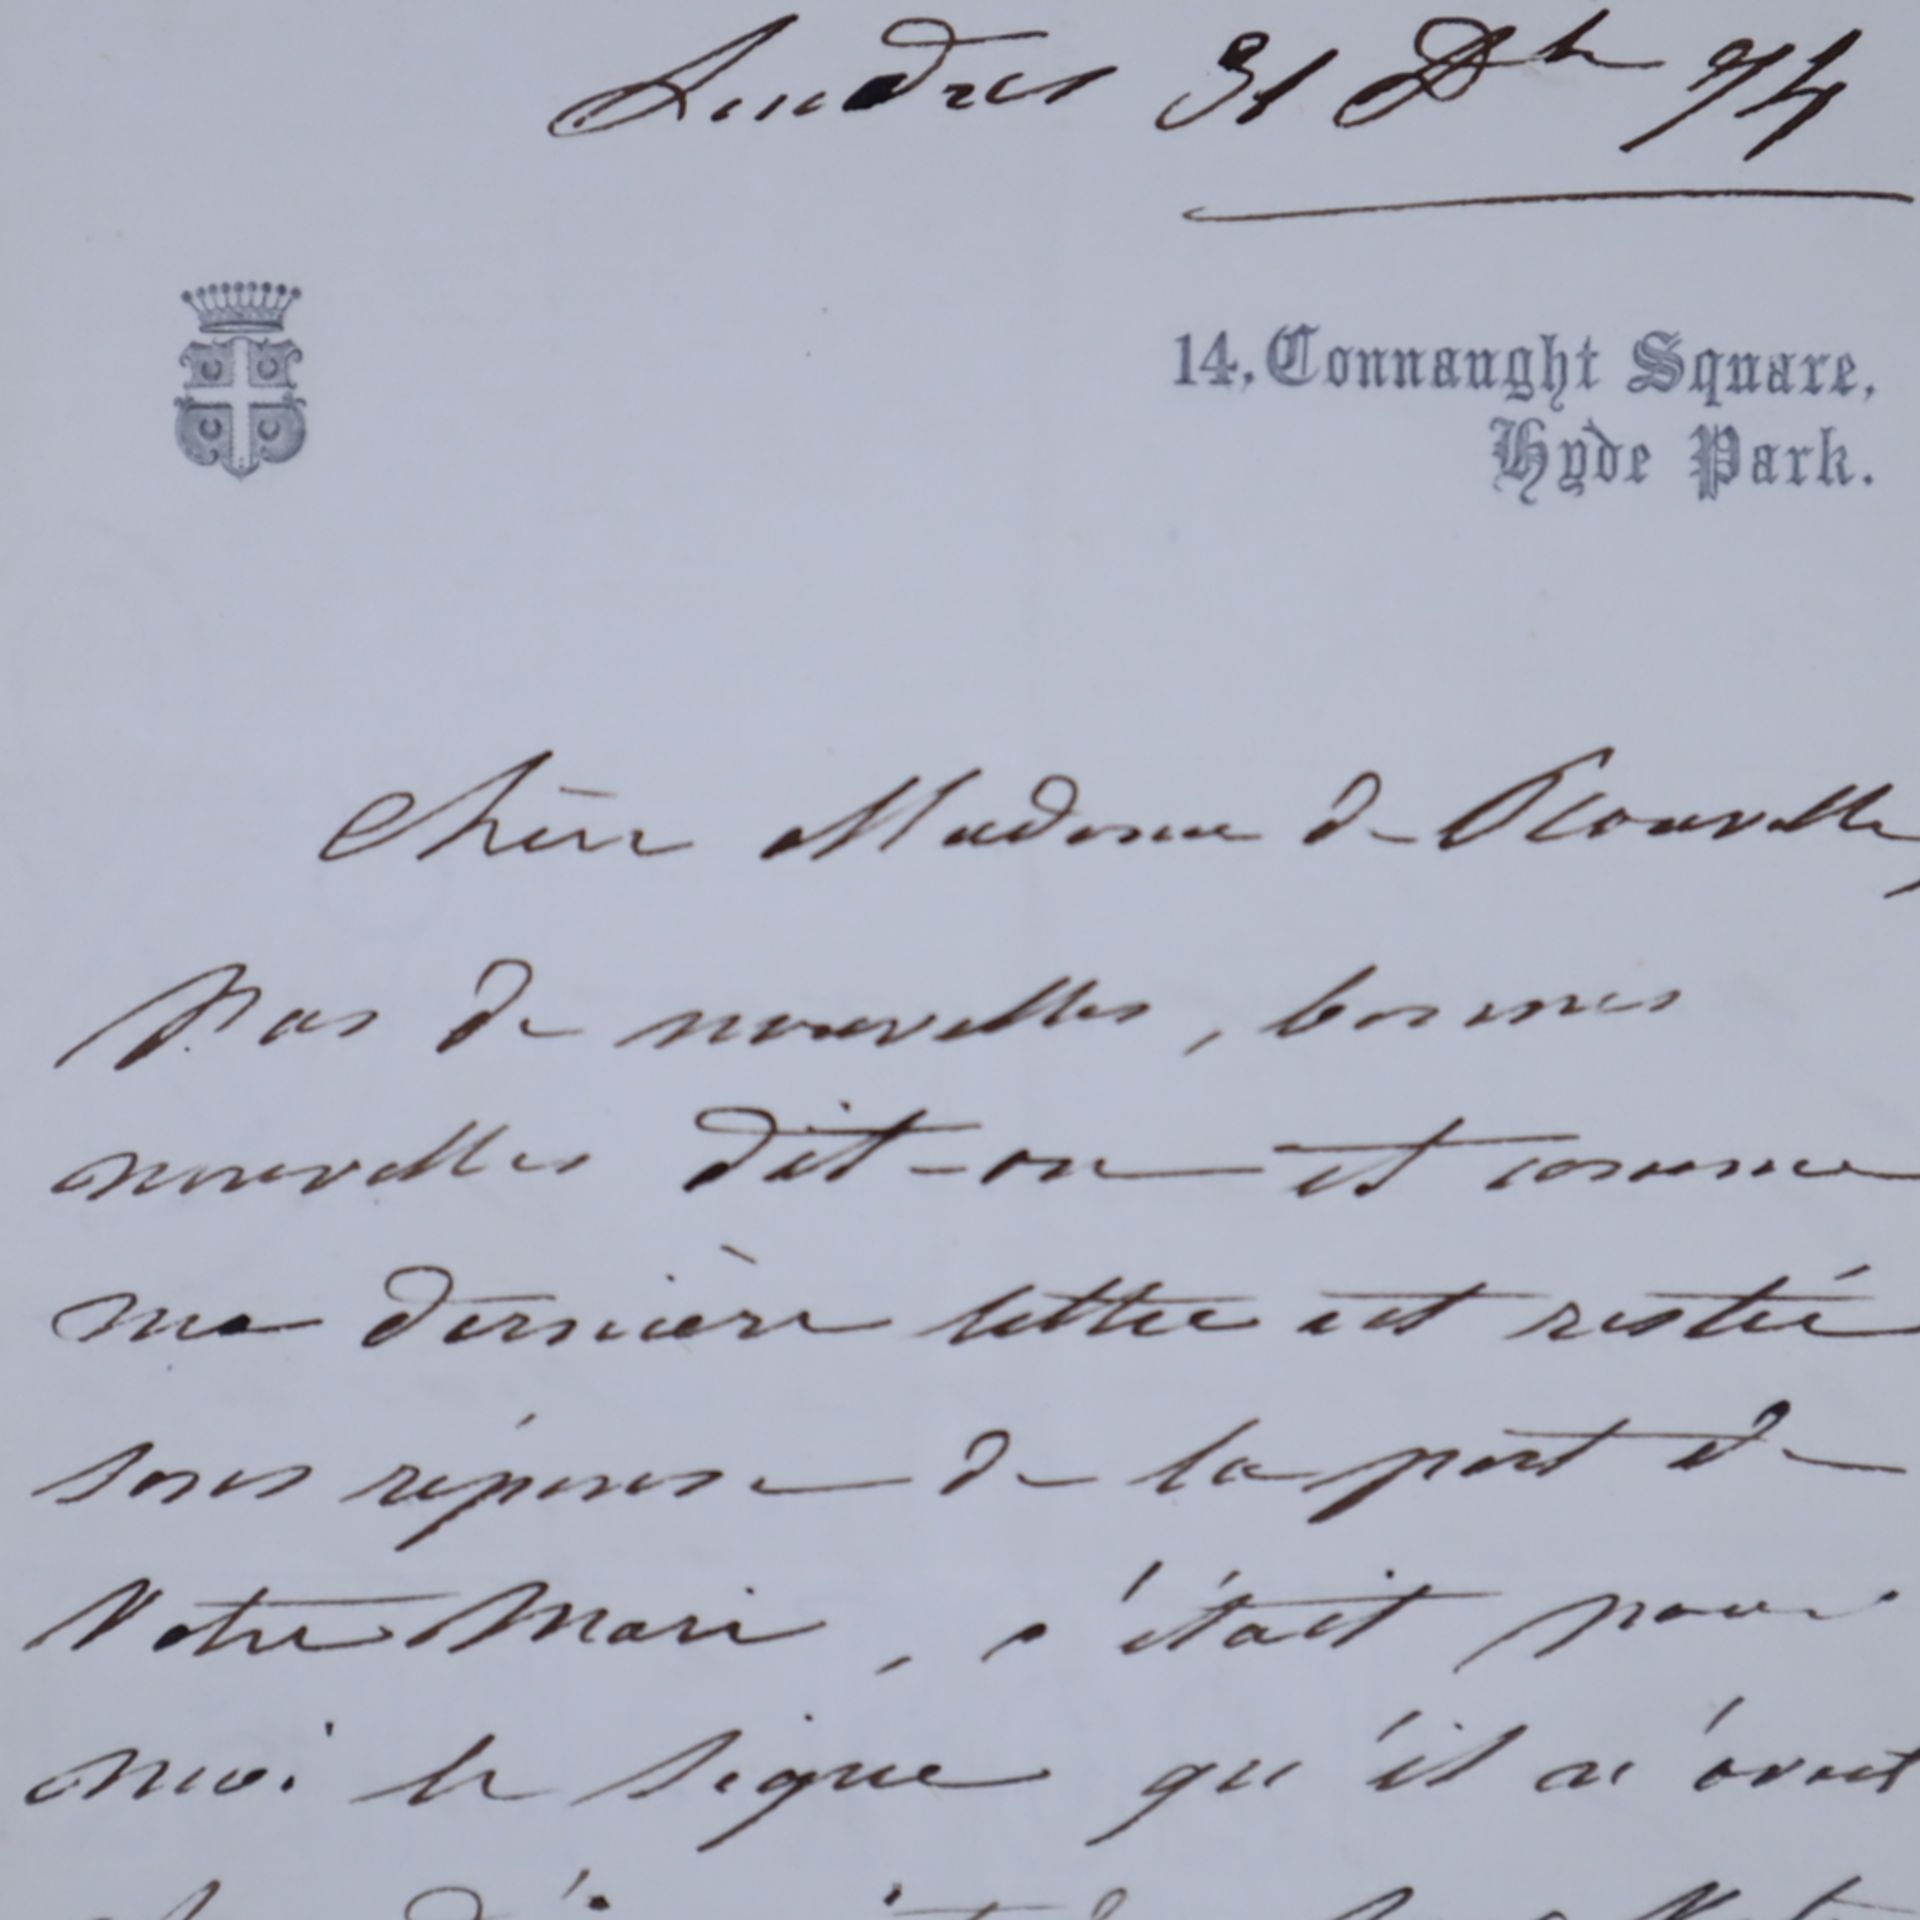 Londres 31 Dbr 74
14, Connaught Square,
Hyde Park.
Chère Madame de
Pas de nouvelles, bonnes
nouvelles dit-on et comme
ma dernière lettre est restée
sans réponse de la part de
Votre Mari, c'était pour
moi le signe qu'il n'avait